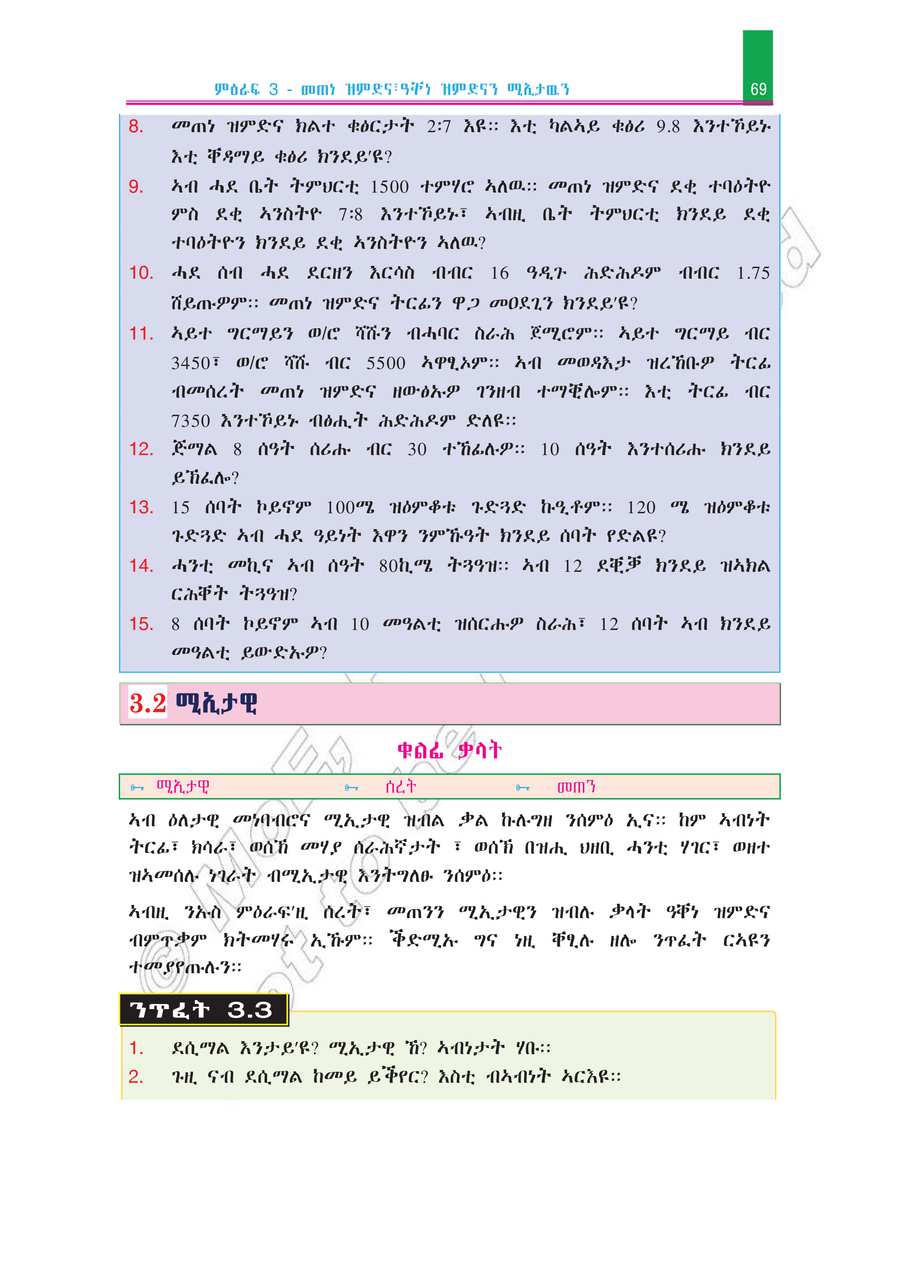 ምዕራፍ 3 - መጠነ ዝምድና፣ዓቐነ ዝምድናን ሚኢታዉን
69
8. መጠነ ዝምድና ክልተ ቁፅርታት 2፡7 እዩ። እቲ ካልኣይ ቁፅሪ 9.8 እንተኾይኑ
እቲ ቐዳማይ ቁፅሪ ክንደይ'ዩ?
9. ኣብ ሓደ ቤት ትምህርቲ 1500 ተምሃሮ ኣለዉ። መጠነ ዝምድና ደቂ ተባዕትዮ
ምስ ደቂ ኣንስትዮ 7፡8 እንተኾይኑ፣ ኣብዚ ቤት ትምህርቲ ክንደይ ደቂ
ተባዕትዮን ክንደይ ደቂ ኣንስትዮን ኣለዉ?
10. ሓደ ሰብ ሓደ ደርዘን እርሳስ ብብር 16 ዓዲጉ ሕድሕዶም ብብር 1.75
ሸይጡዎም። መጠነ ዝምድና ትርፊን ዋጋ መዐደጊን ክንደይ'ዩ?
11. ኣይተ ግርማይን ወ/ሮ ሻሹን ብሓባር ስራሕ ጀሚሮም። ኣይተ ግርማይ ብር
3450፣ ወ/ሮ ሻሹ ብር 5500 ኣዋፂኦም። ኣብ መወዳእታ ዝረኸቡዎ ትርፊ
ብመሰረት መጠነ ዝምድና ዘውፅኡዎ ገንዘብ ተማቒሎም። እቲ ትርፊ ብር
7350 እንተኾይኑ ብፅሒት ሕድሕዶም ድለዩ።
12. ጅማል 8 ሰዓት ሰሪሑ ብር 30 ተኸፊሉዎ። 10 ሰዓት እንተሰሪሑ ክንደይ
ይኸፈሎ?
13. 15 ሰባት ኮይኖም 100ሜ ዝዕምቆቱ ጉድጓድ ኩዒቶም። 120 ሜ ዝዕምቆቱ
ጉድጓድ ኣብ ሓደ ዓይነት እዋን ንምኹዓት ክንደይ ሰባት የድልዩ?
14. ሓንቲ መኪና ኣብ ሰዓት 80ኪሜ ትጓዓዝ። ኣብ 12 ደቒቓ ክንደይ ዝኣክል
ርሕቐት ትጓዓዝ?
15. 8 ሰባት ኮይኖም ኣብ 10 መዓልቲ ዝሰርሑዎ ስራሕ፣ 12 ሰባት ኣብ ክንደይ
መዓልቲ ይውድኡዎ?
3.2 ሚኢታዊ
ቁልፊ ቃላት
ሚኢታዊ ሰረት መጠን
ኣብ ዕለታዊ መነባብሮና ሚኢታዊ ዝብል ቃል ኩሉግዘ ንሰምዕ ኢና። ከም ኣብነት
ትርፊ፣ ክሳራ፣ ወሰኽ መሃያ ሰራሕኛታት ፣ ወሰኽ በዝሒ ህዘቢ ሓንቲ ሃገር፣ ወዘተ
ዝኣመሰሉ ነገራት ብሚኢታዊ እንትግለፁ ንሰምዕ።
ኣብዚ ንኡስ ምዕራፍ'ዚ ሰረት፣ መጠንን ሚኢታዊን ዝብሉ ቃላት ዓቐነ ዝምድና
ብምጥቃም ክትመሃሩ ኢኹም። ቅድሚኡ ግና ነዚ ቐፂሉ ዘሎ ንጥፈት ርኣዩን
ተመያየጡሉን።
ንጥፈት 3.3
1. ደሲማል እንታይ'ዩ? ሚኢታዊ ኸ? ኣብነታት ሃቡ።
2. ጉዚ ናብ ደሲማል ከመይ ይቕየር? እስቲ ብኣብነት ኣርእዩ።